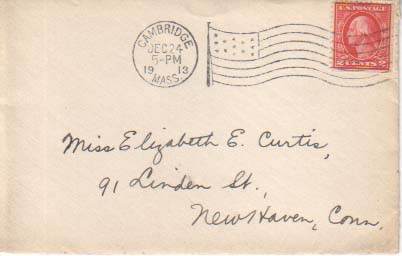 CAMBRIDGE
DEC 24
5-PM
1913
MASS.
U.S. POSTAGE
2 CENTS 2
Miss Elizabeth E. Curtis,
91 Linden St.,
New Haven, Conn.